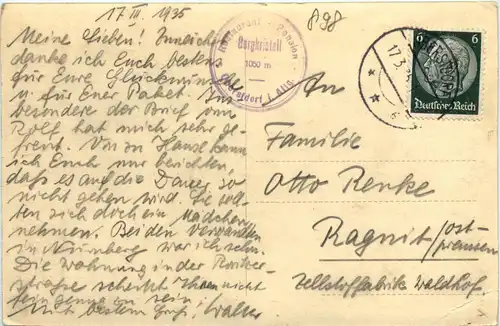 17 III. 1935
Meine Lieben!
danke ich Euch bestens
für Eure Glückwünsche
u. für Euer Paket. Ins
besondere der Brief von
Rolf hat mich sehr ge-
freut. Von zu Hause kann
ich Euch nur berichten,
daß es auf die Dauer so
nicht gehen wird. Sie soll-
ten sich doch ein Mädchen
nehmen. Bei den Verwandten
in Nürnberg war ich schon.
Die Wohnung in der
straße scheint Ihnen nicht
fein genug zu sein.
Mit bestem Gruß, Walter
898
Restaurant - Pension
Bergkristall
1050 m
Oberstdorf i. Allg.
17.3.
6 6
Deutsches Reich
An
Familie
Otto Renke
Ragnit/Ost-
preussen
Zellstofffabrik Waldhof.